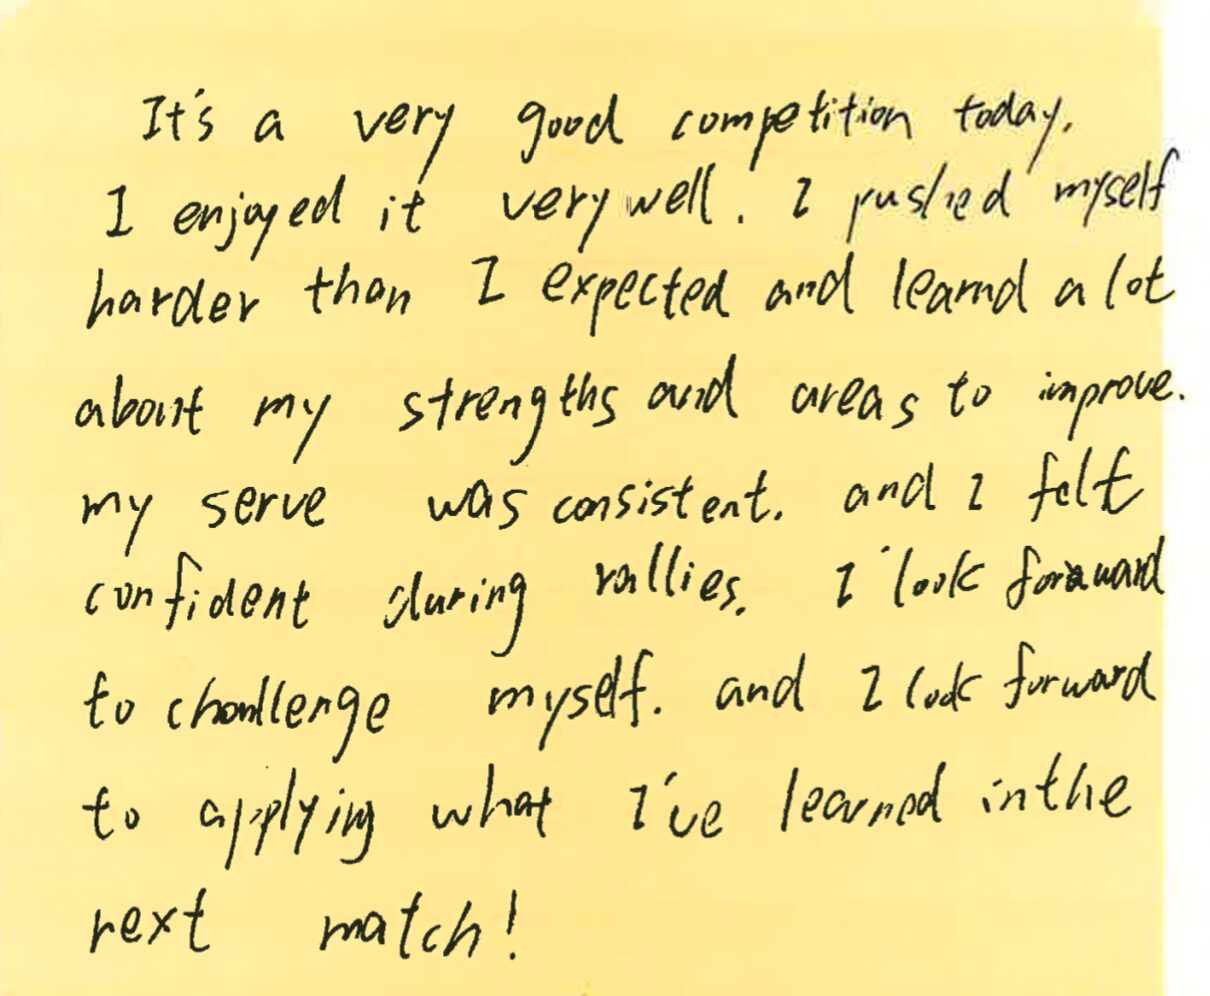 It's a very good competition today.
I enjoyed it very well. I pushed myself
harder than I expected and learnd a lot
about my strengths and areas to improve.
my serve was consistent. and I felt
confident during rallies. I look forward
to challenge myself. and I look forward
to applying what I've learned in the
next match!